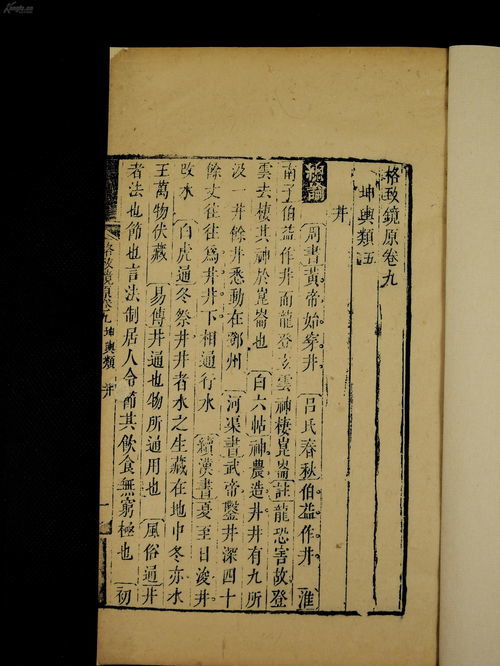 格致鏡原卷九
坤輿類五
井
總論
周書黃帝始穿井 呂氏春秋伯益作井 淮
南子伯益作井而龍登玄雲神棲崑崙註龍恐害故登
雲去棲其神於崑崙也 白六帖神農造井井有九所
汲一井餘井悉動在鄧州 河渠書武帝鑿井深四十
餘丈往往為井井下相通行水 續漢書夏至日浚井
改水 白虎通冬祭井井者水之生藏在地中冬亦水
王萬物伏藏 易傳井通也物所通用也 風俗通井
者法也節也言法制居人令節其飲食無窮極也 初
格致鏡原卷九 坤輿類 井 一
Kongfz.cn